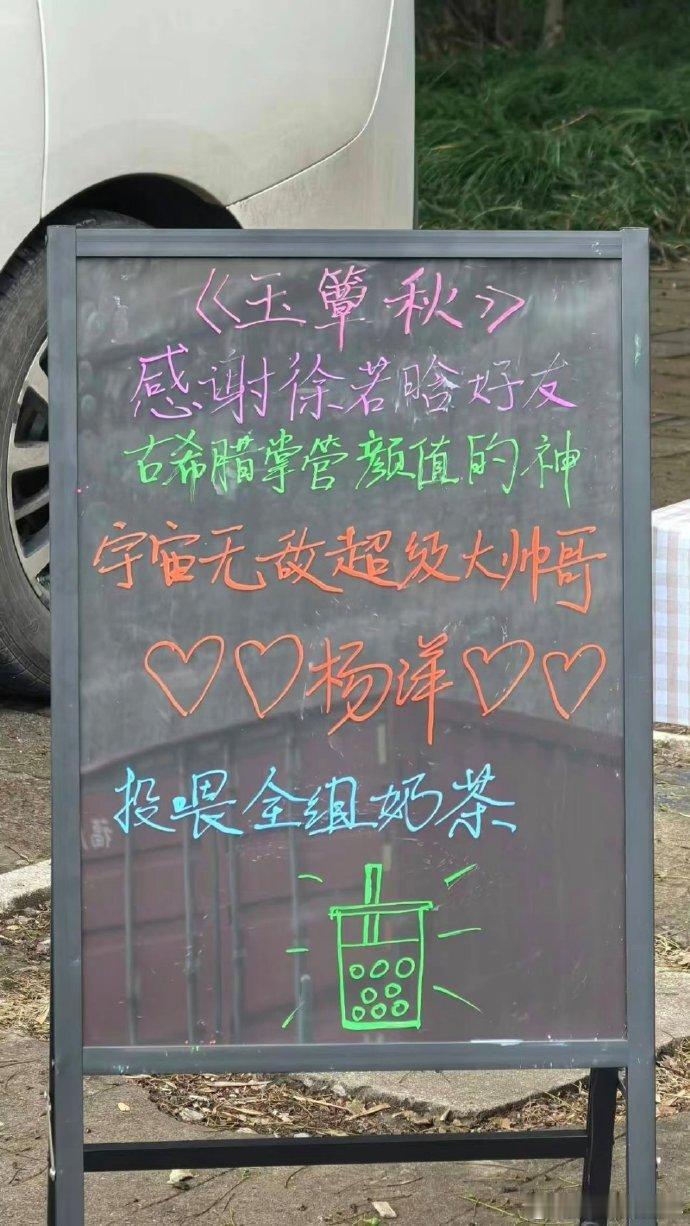 《玉簟秋》
感谢徐若晗好友
古希腊掌管颜值的神
宇宙无敌超级大帅哥
♡♡杨洋♡♡
投喂全组奶茶
福